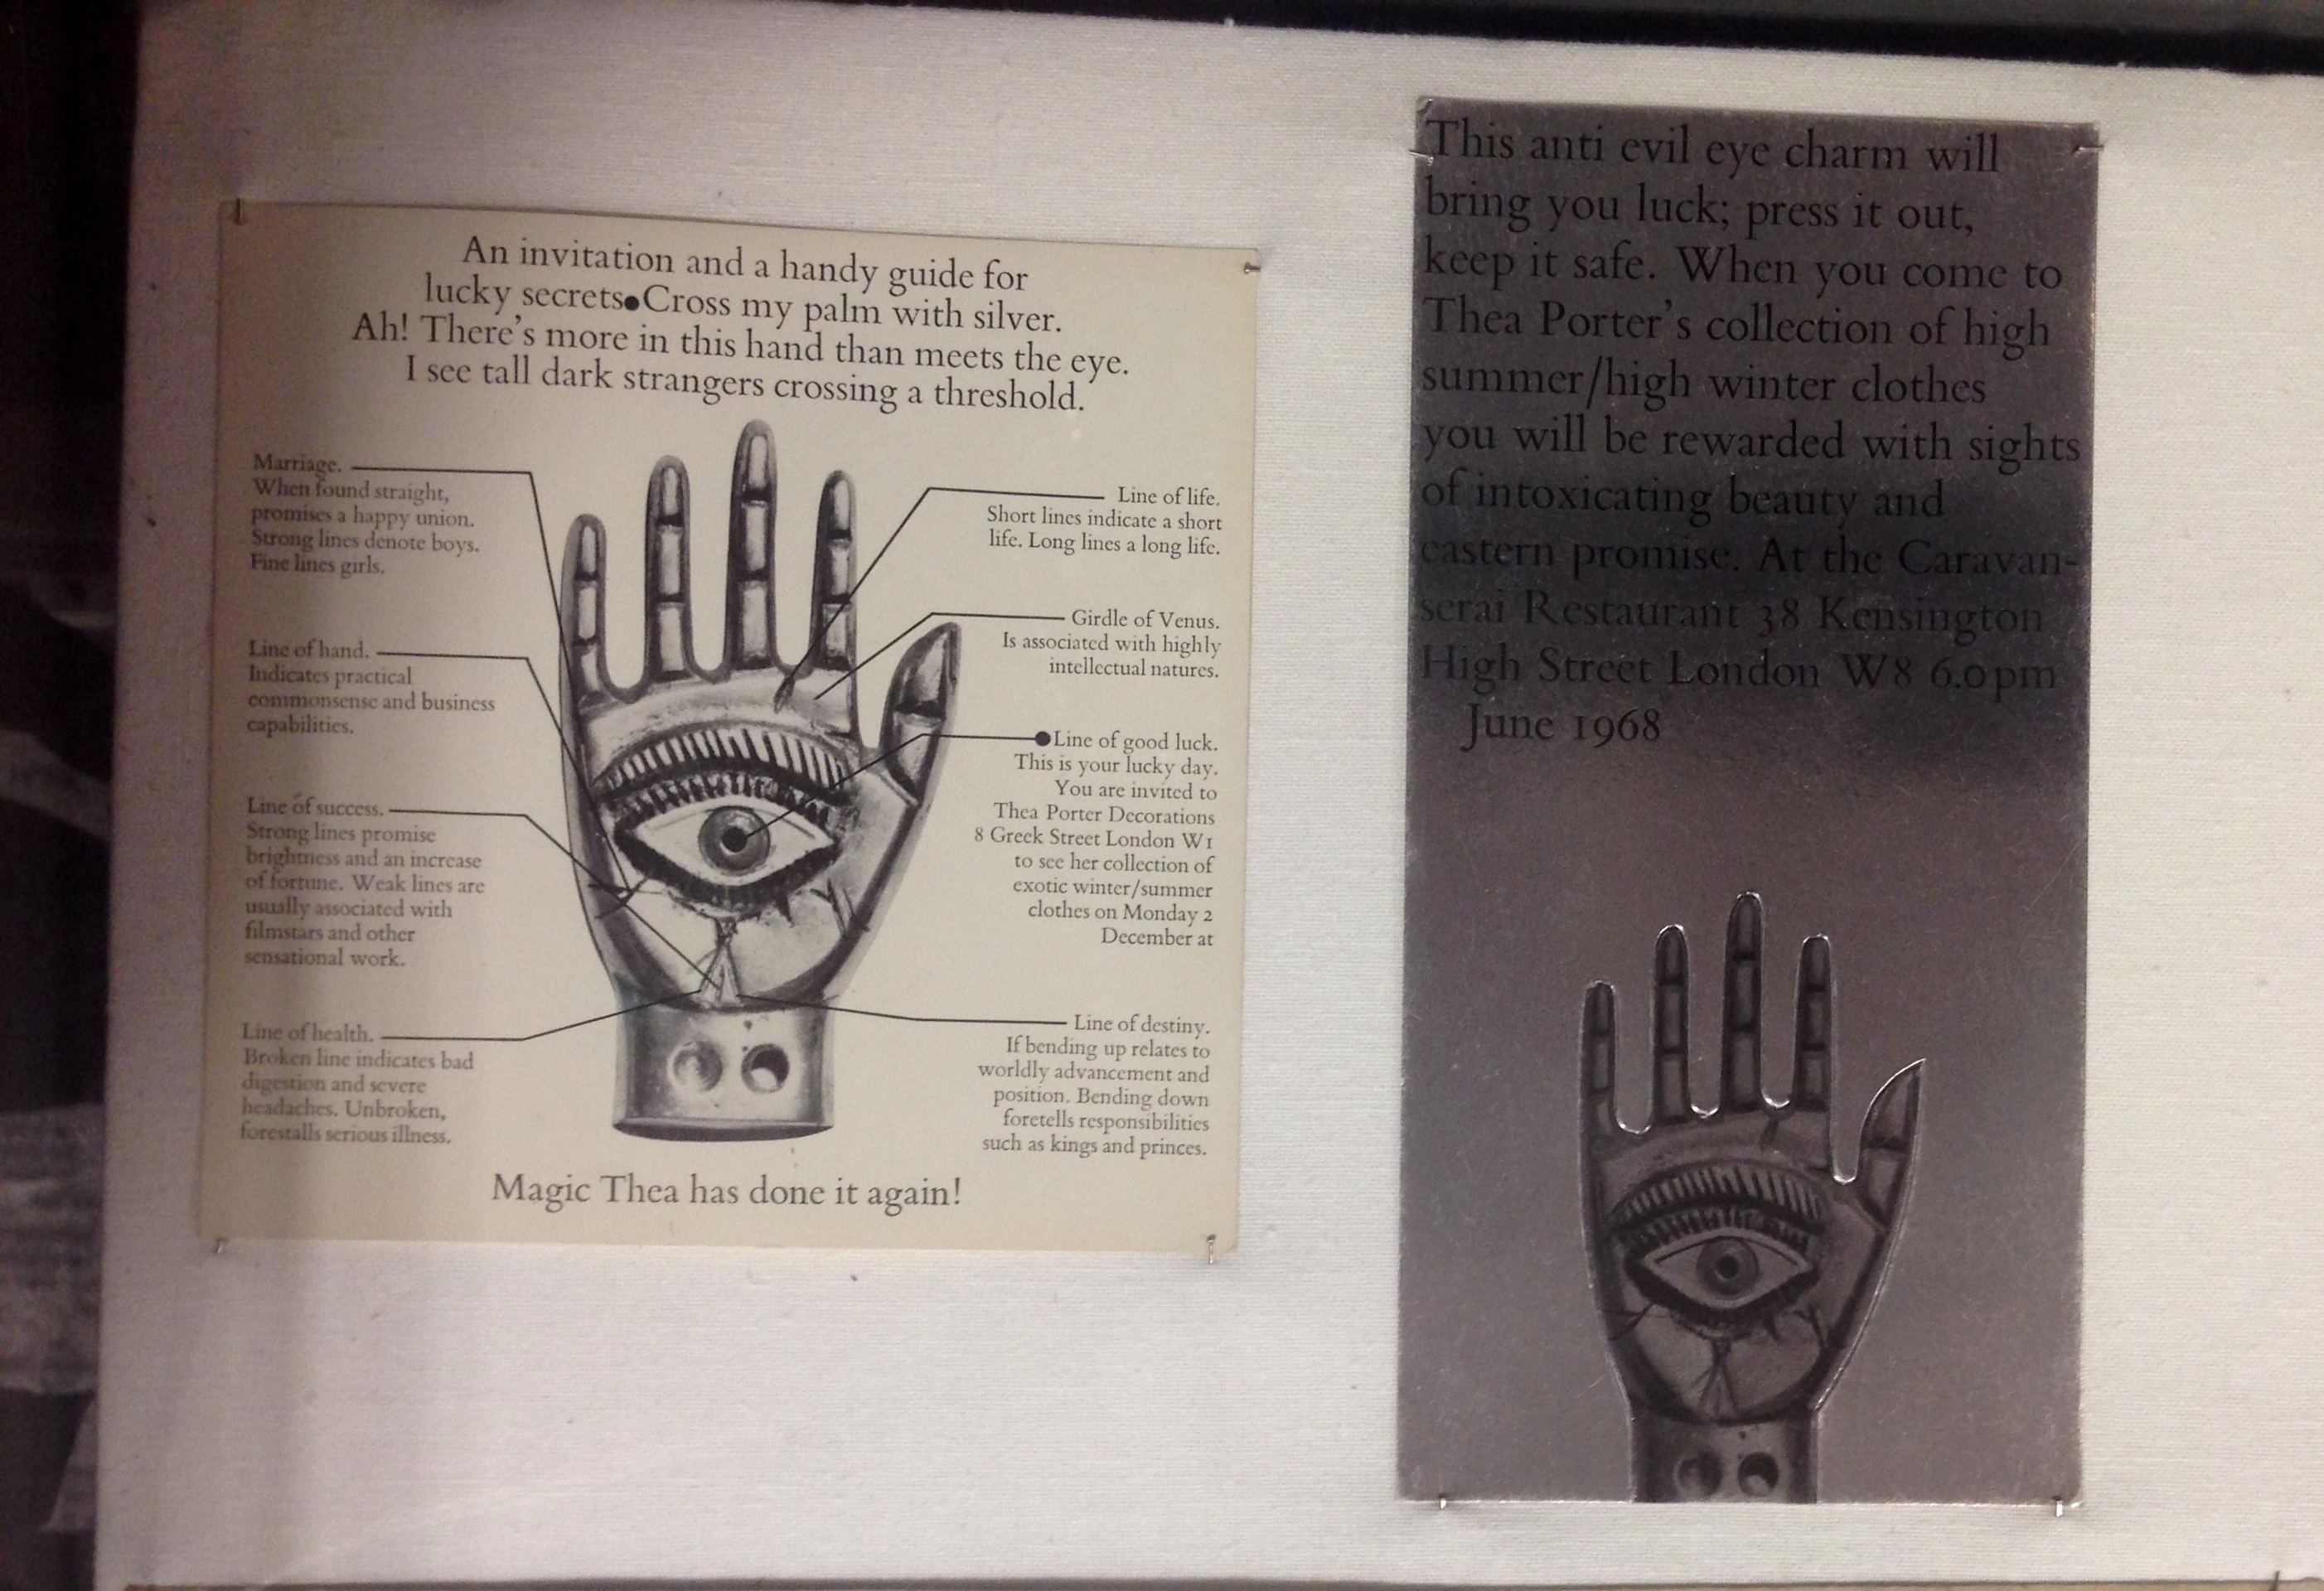 An invitation and a handy guide for
lucky secrets●Cross my palm with silver.
Ah! There's more in this hand than meets the eye.
I see tall dark strangers crossing a threshold.
Marriage.
When found straight,
promises a happy union.
Strong lines denote boys.
Fine lines girls.
Line of hand.
Indicates practical
commonsense and business
capabilities.
Line of success.
Strong lines promise
brightness and an increase
of fortune. Weak lines are
usually associated with
filmstars and other
sensational work.
Line of health.
Broken line indicates bad
digestion and severe
headaches. Unbroken,
forestalls serious illness.
Line of life.
Short lines indicate a short
life. Long lines a long life.
Girdle of Venus.
Is associated with highly
intellectual natures.
Line of good luck.
This is your lucky day.
You are invited to
Thea Porter Decorations
8 Greek Street London W1
to see her collection of
exotic winter/summer
clothes on Monday 2
December at
Line of destiny.
If bending up relates to
worldly advancement and
position. Bending down
foretells responsibilities
such as kings and princes.
Magic Thea has done it again!
This anti evil eye charm will
bring you luck; press it out,
keep it safe. When you come to
Thea Porter's collection of high
summer/high winter clothes
you will be rewarded with sights
of intoxicating beauty and
eastern promise. At the Caravan-
serai Restaurant 38 Kensington
High Street London W8 6.0pm
June 1968